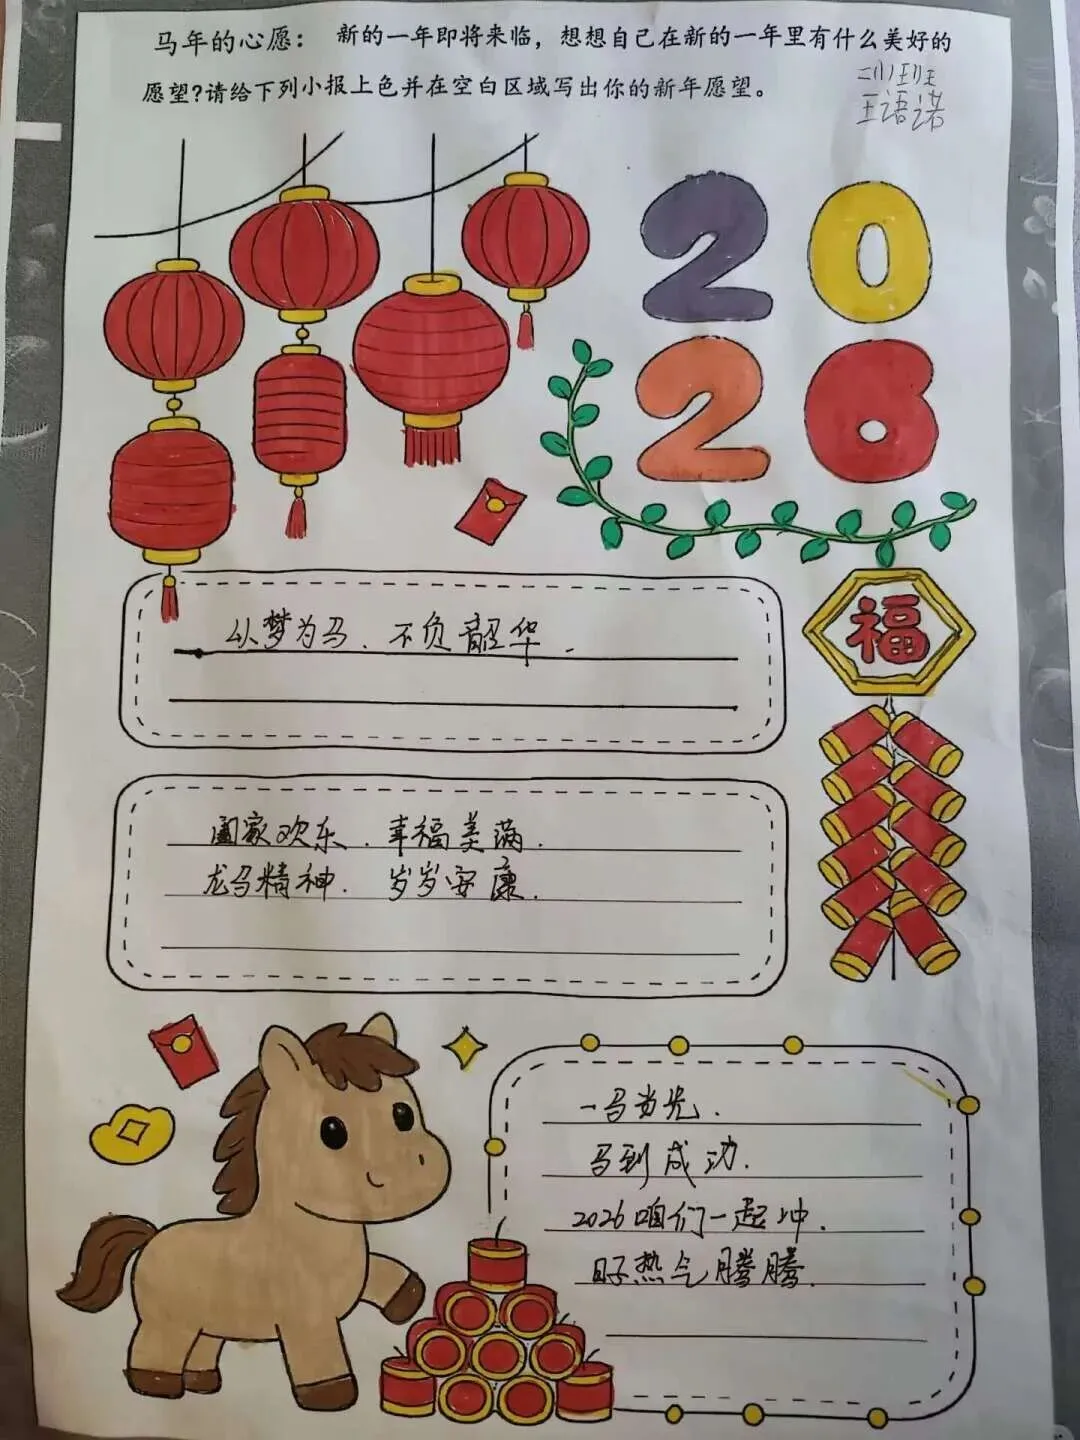 马年的心愿： 新的一年即将来临，想想自己在新的一年里有什么美好的
愿望?请给下列小报上色并在空白区域写出你的新年愿望。
王语诺
2 0
2 6
福
从梦为马、不负韶华.
阖家欢乐、幸福美满.
龙马精神、岁岁安康.
一马当先.
马到成功.
2026咱们一起冲.
日子热气腾腾.